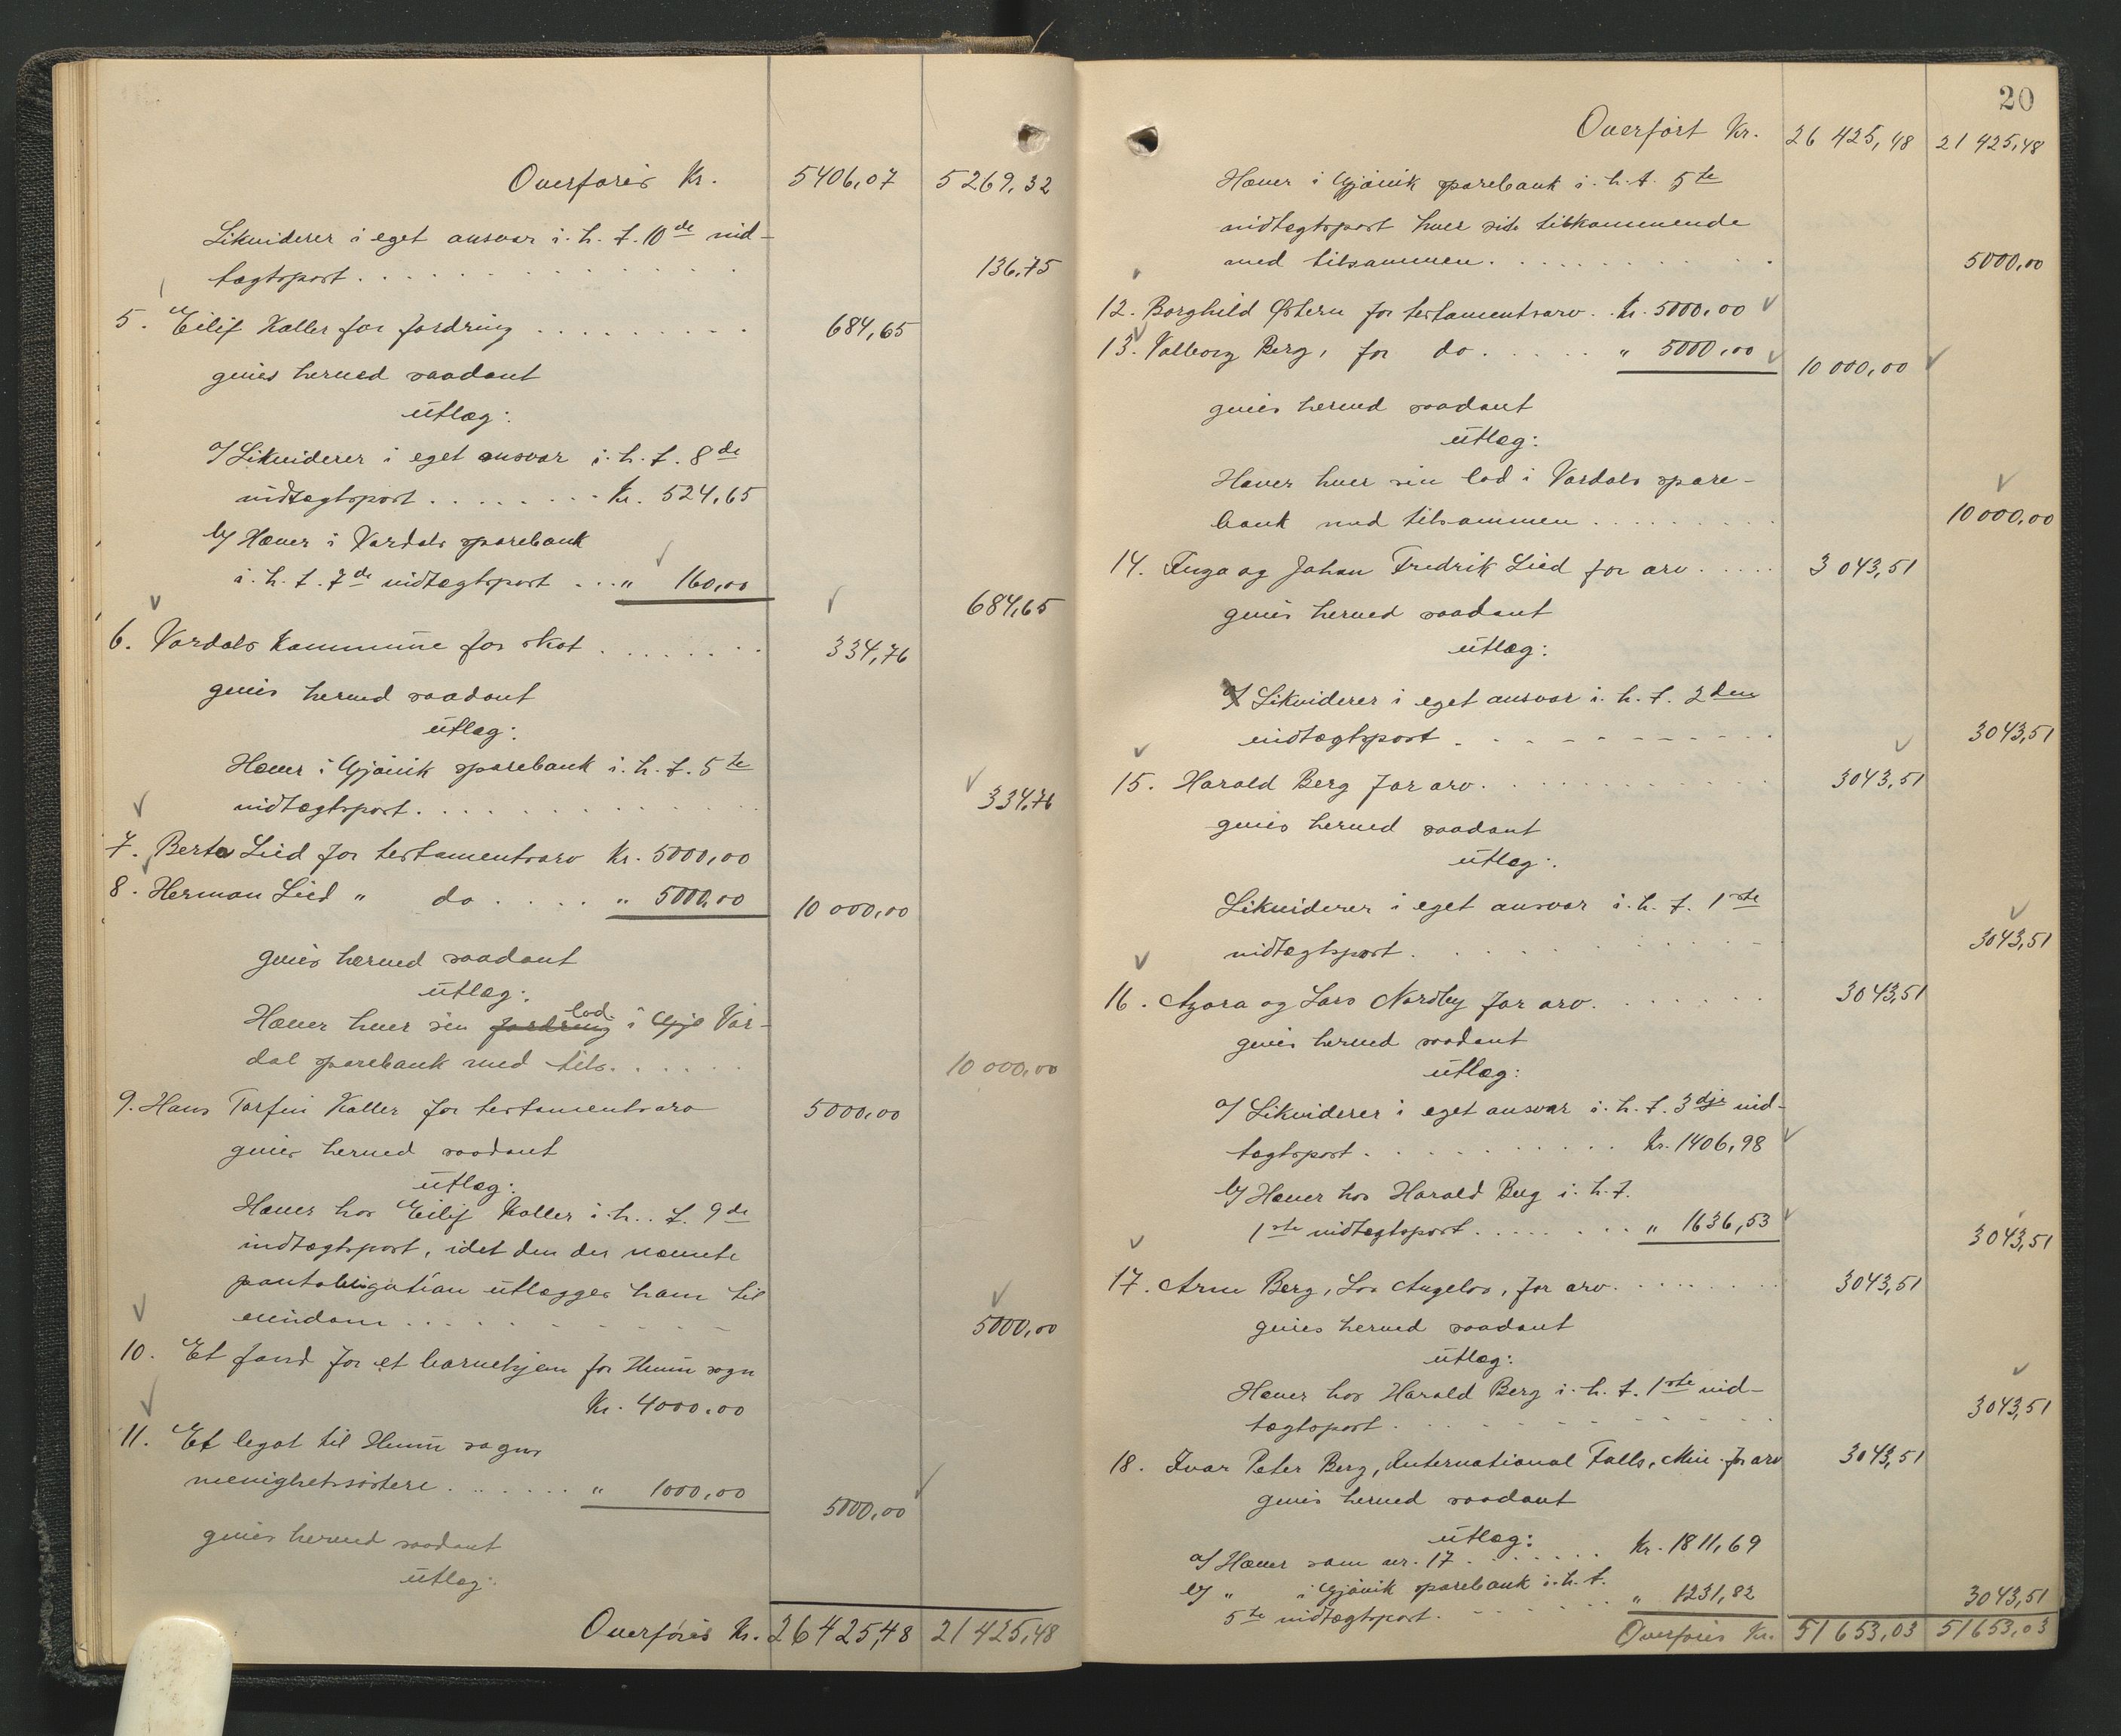 Overføres Kr. 5406,07 5269,32
Likviderer i eget ansvar i. h. t. 10de ind-
tægtspost . . . 136,75
5. Eilif Koller for fordring . . . 684,65
gives herved saadant
utlæg:
a/ Likviderer i eget ansvar i. h. t. 8de
indtægtspost . . . Kr. 524,65
b/ Hæver i Vardals sparebank
i. h. t. 7de indtægtspost . . . " 160,00 684,65
6. Vardals kommune for skat . . . 334,76
gives herved saadant
utlæg:
Hæver i Gjøvik sparebank i. h. t. 5te
indtægtspost . . . 334,76
7. Berta Lied for testamentsarv Kr. 5000,00
8. Herman Lied " do . . . " 5000,00 10 000,00
gives herved saadant
utlæg:
Hæver hver sin fordring lod i Gjø Var-
dal sparebank med tils. . . . 10 000,00
9. Hans Torfin Koller for testamentsarv 5000,00
gives herved saadant
utlæg:
Hæver hos Eilif Koller i. h. t. 9de
indtægtspost, idet den der nævnte
pantobligation utlægges ham til
eiendom . . . 5000,00
10. Et fond for et barnehjem for Hunn sogn
Kr. 4000,00
11. Et legat til Hunn sogns
menighetssøstere . . . " 1000,00 5000,00
gives herved saadant
utlæg:
Overføres Kr. 26425,48 21425,48
20
Overført Kr. 26 425,48 21 425,48
Hæver i Gjøvik sparebank i. h. t. 5te
indtægtspost hver sit tilkommende
med tilsammen . . . 5000,00
12. Borghild Østern for testamentsarv . Kr. 5000,00
13. Valborg Berg, for do . . . " 5000,00 10 000,00
gives herved saadant
utlæg:
Hæver hver sin lod i Vardals spare-
bank med tilsammen . . . 10 000,00
14. Inga og Johan Fredrik Lied for arv . . . 3043,51
gives herved saadant
utlæg:
a/ Likviderer i eget ansvar i. h. t. 2den
indtægtspost . . . 3043,51
15. Harald Berg for arv . . . 3043,51
gives herved saadant
utlæg:
Likviderer i eget ansvar i. h. t. 1ste
indtægtspost . . . 3043,51
16. Agora og Lars Nordby for arv . . . 3043,51
gives herved saadant
utlæg:
a/ Likviderer i eget ansvar i. h. t. 3dje ind-
tægtspost . . . Kr. 1406,98
b/ Hæver hos Harald Berg i. h. t.
1ste indtægtspost . . . " 1636,53 3043,51
17. Arne Berg, Los Angelos, for arv . . . 3043,51
gives herved saadant
utlæg:
Hæver hos Harald Berg i. h. t. 1ste ind-
tægtspost . . . 3043,51
18. Ivar Peter Berg, International Falls, Min. for arv 3043,51
gives herved saadant
utlæg:
a/ Hæver som nr. 17 . . . Kr. 1811,69
b/ " i Gjøvik sparebank i. h. t.
5te indtægtspost . . . " 1231,82 3043,51
Overføres Kr. 51653,03 51653,03